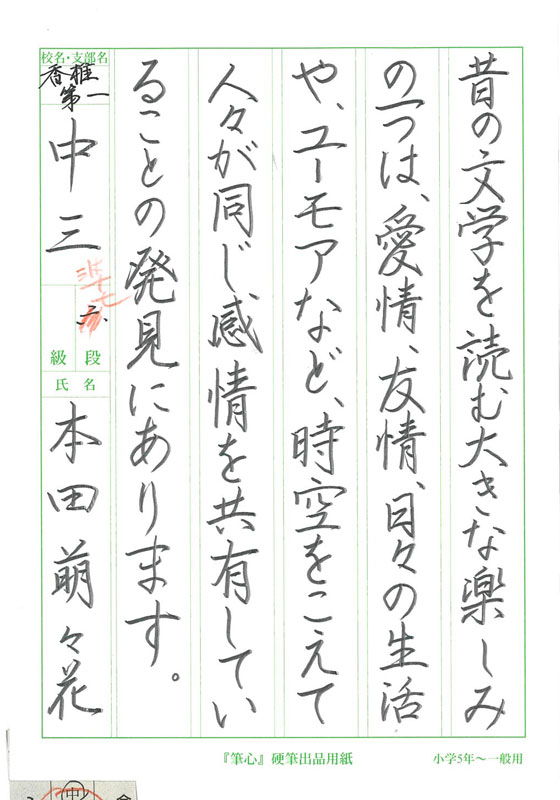 昔の文学を読む大きな楽しみ
の一つは、愛情、友情、日々の生活
や、ユーモアなど、時空をこえて
人々が同じ感情を共有してい
ることの発見にあります。
校名・支部名
香椎
第一
中三
段
級
氏名
本田萌々花
『筆心』硬筆出品用紙
小学5年〜一般用